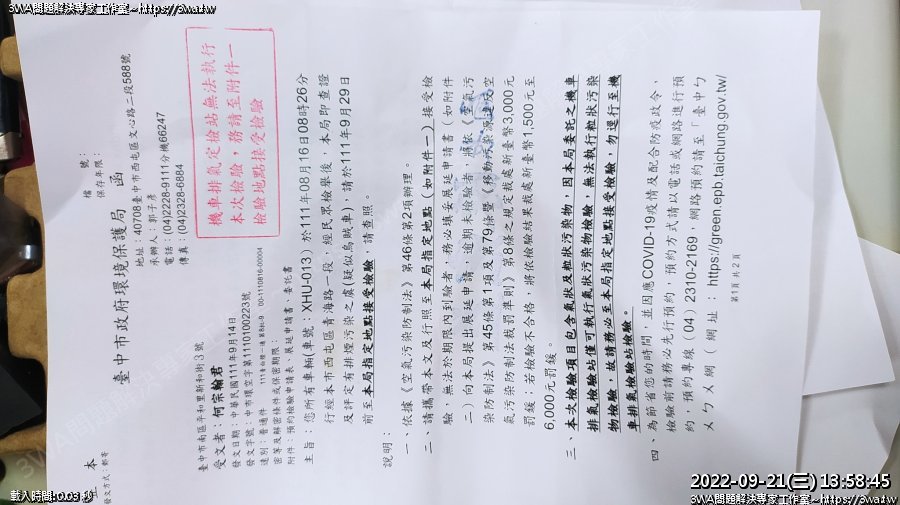 3WA問題解決專家工作室~https://3wa.tw
檔 號：
保存年限：
臺中市政府環境保護局 函
地址：40708臺中市西屯區文心路二段588號
承辦人：郭子彥
電話：(04)2228-9111分機66247
傳真：(04)2328-6884
機車排氣定檢站無法執行
本次檢驗，務請至附件一
檢驗地點接受檢驗
正 本
發文方式：郵寄
臺中市南區平和里新和街3號
受文者：何宗翰君
發文日期：中華民國111年9月14日
發文字號：中市環空字第1110100223號
速別：普通件
密等及解密條件或保密期限：
附件：預約檢驗申請表、展延申請書、委託書
主旨：您所有車輛(車號：XHU-013)於111年08月16日08時26分
行經本市西屯區青海路一段，經民眾檢舉後，本局即查證
及評定有排煙污染之虞(疑似烏賊車)，請於111年9月29日
前至本局指定地點接受檢驗，請查照。
說明：
一、依據《空氣污染防制法》第46條第2項辦理。
二、請攜帶本文及行照至本局指定地點（如附件一）接受檢
驗，無法於期限內到驗者，務必填妥展延申請書（如附件
二）向本局提出展延申請，逾期未檢驗者，將依《空氣污
染防制法》第45條第1項及第79條暨《移動污染源違反空
氣污染防制法裁罰準則》第8條之規定裁處新臺幣3,000元
罰鍰；若檢驗不合格，將依檢驗結果裁處新臺幣1,500元至
6,000元罰鍰。
三、本次檢驗項目包含氣狀及粒狀污染物，因本局委託之機車
排氣檢驗站僅可執行氣狀污染物檢驗，無法執行粒狀污染
物檢驗，故請務必至本局指定地點接受檢驗，勿逕行至機
車排氣檢驗站檢驗。
四、為節省您的時間，並因應COVID-19疫情及配合防疫政令，
檢驗前請務必先行預約，預約方式請以電話或網路進行預
約，預約專線（04）2310-2169，網路預約請至「臺中ㄅ
ㄨㄅㄨ（網址：https://green.epb.taichung.gov.tw/
第1頁 共2頁
載入時間:0.03 秒
2022-09-21(三) 13:58:45
3WA問題解決專家工作室~https://3wa.tw